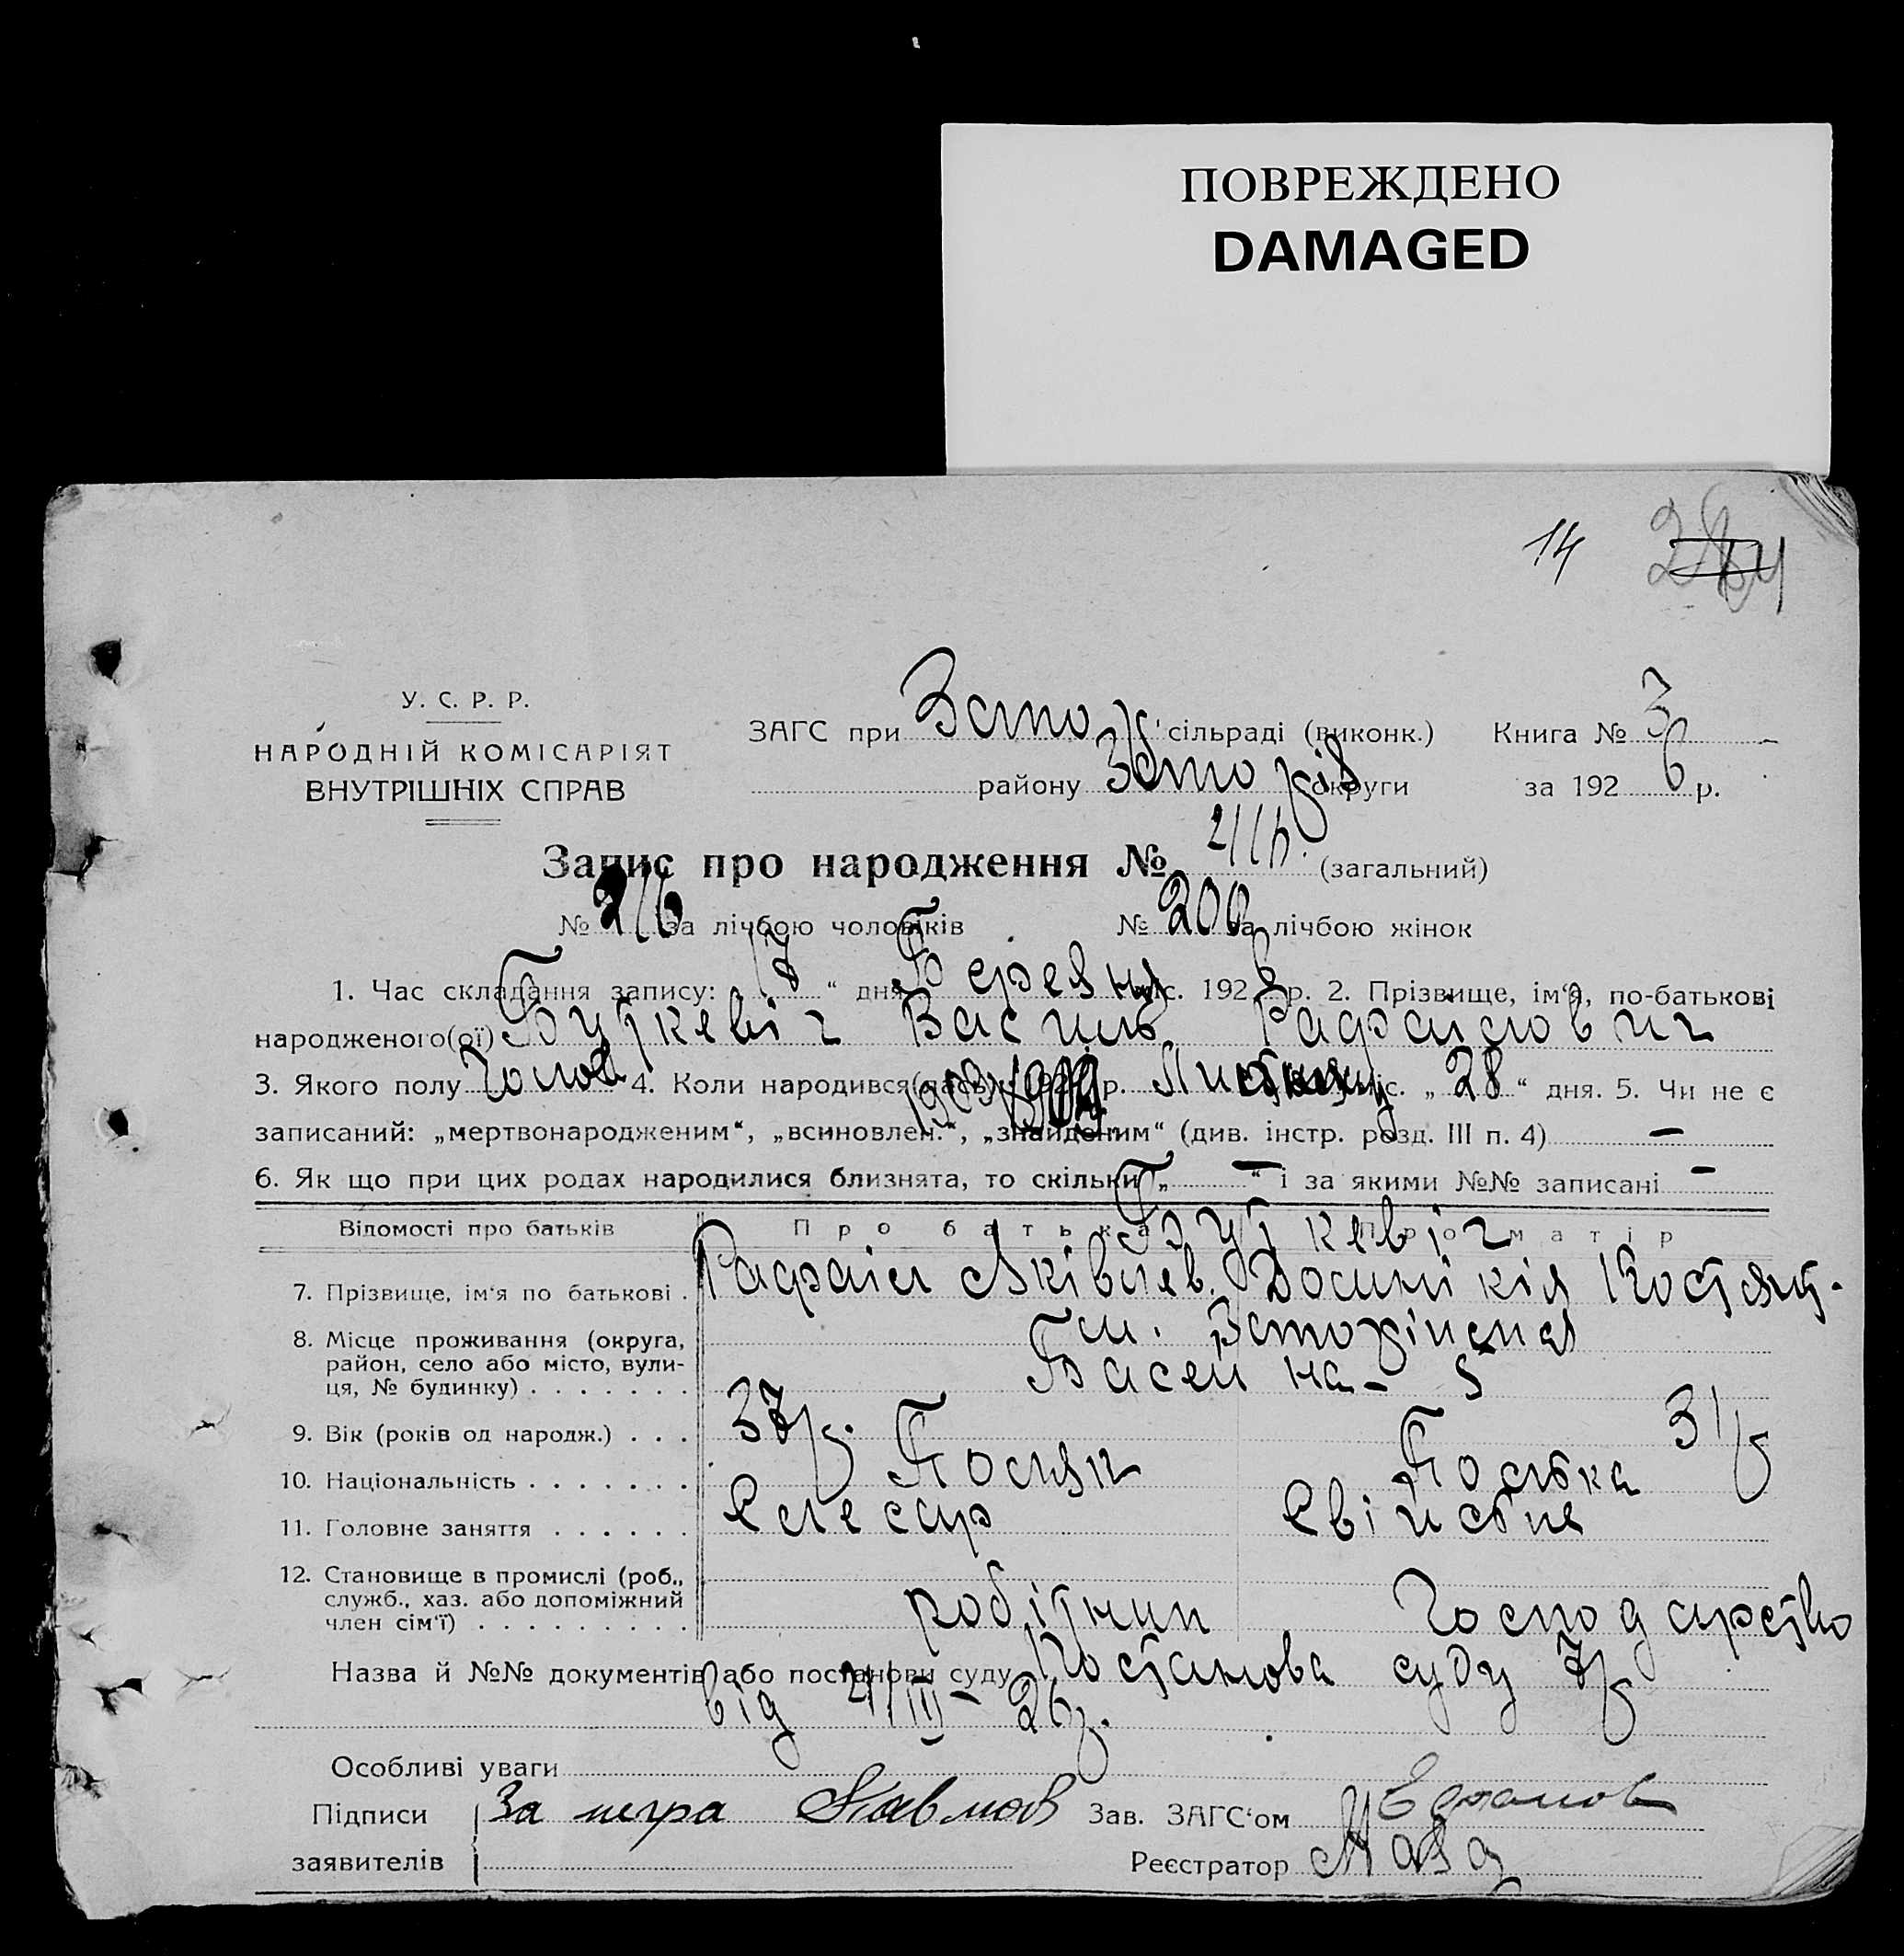 ПОВРЕЖДЕНО
DAMAGED
14
У. С. Р. Р.
НАРОДНІЙ КОМІСАРІЯТ
ВНУТРІШНІХ СПРАВ
ЗАГС при сільраді (виконк.) Книга № 3
району округи за 192 6 р.
Запис про народження № (загальний)
№ 216 за лічбою чоловіків № 200 за лічбою жінок
1. Час складання запису: „17“ дня Березня міс. 192 6 р. 2. Прізвище, ім‘я, по-батькові
народженого(ої) Буткевіч Василь Рафаілович
3. Якого полу Чолов 4. Коли народився(лась): 192 р. міс. „28“ дня. 5. Чи не є
записаний: „мертвонародженим“, „всиновлен.“, „знайденим“ (див. інстр. розд. III п. 4) —
6. Як що при цих родах народилися близнята, то скільки „ — “ і за якими №№ записані —
Відомості про батьків Про батька Про матір
Буткевіч
7. Прізвище, ім‘я по батькові . Рафаіл Яківлев. Домінікія Костянт.
8. Місце проживання (округа,
район, село або місто, вули-
ця, № будинку) . . . . . . . Басейна - 5
9. Вік (років од народж.) . . . 37 р. 31 р
10. Національність . . . . . . . Поляк Полька
11. Головне заняття . . . . . . Слесар Свійське
12. Становище в промислі (роб.,
служб., хаз. або допоміжний
член сім‘ї) . . . . . . . . . робітник Господарство
Назва й №№ документів або постанови суду Постанова суду 7/р
від 4/III - 26 р.
Особливі уваги
Підписи За негра Павлов Зав. ЗАГС‘ом
заявителів Реєстратор